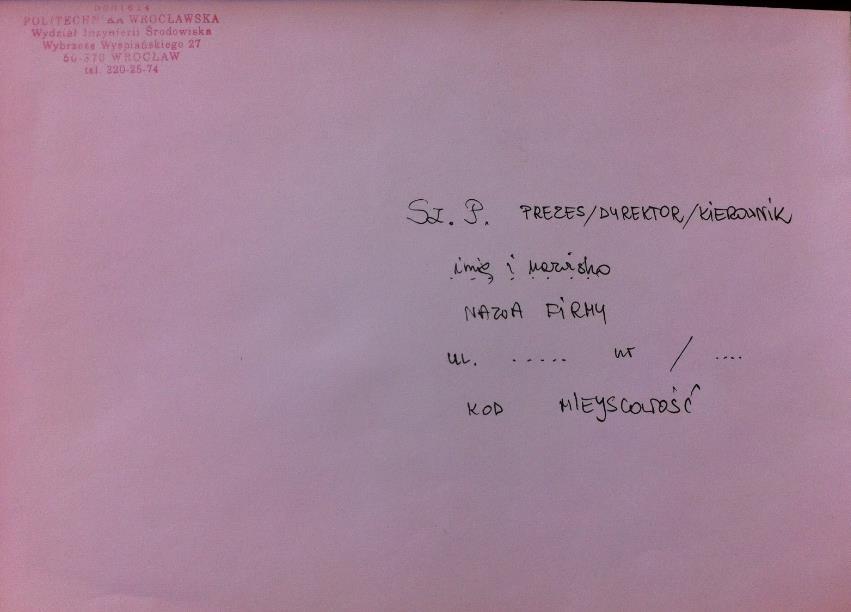 POLITECHNIKA WROCŁAWSKA
Wydział Inżynierii Środowiska
Wybrzeże Wyspiańskiego 27
50-370 WROCŁAW
tel. 320-25-74
Sz. P. PREZES/DYREKTOR/KIEROWNIK
imię i nazwisko
NAZWA FIRMY
UL. ..... nr / ....
KOD MIEJSCOWOŚĆ